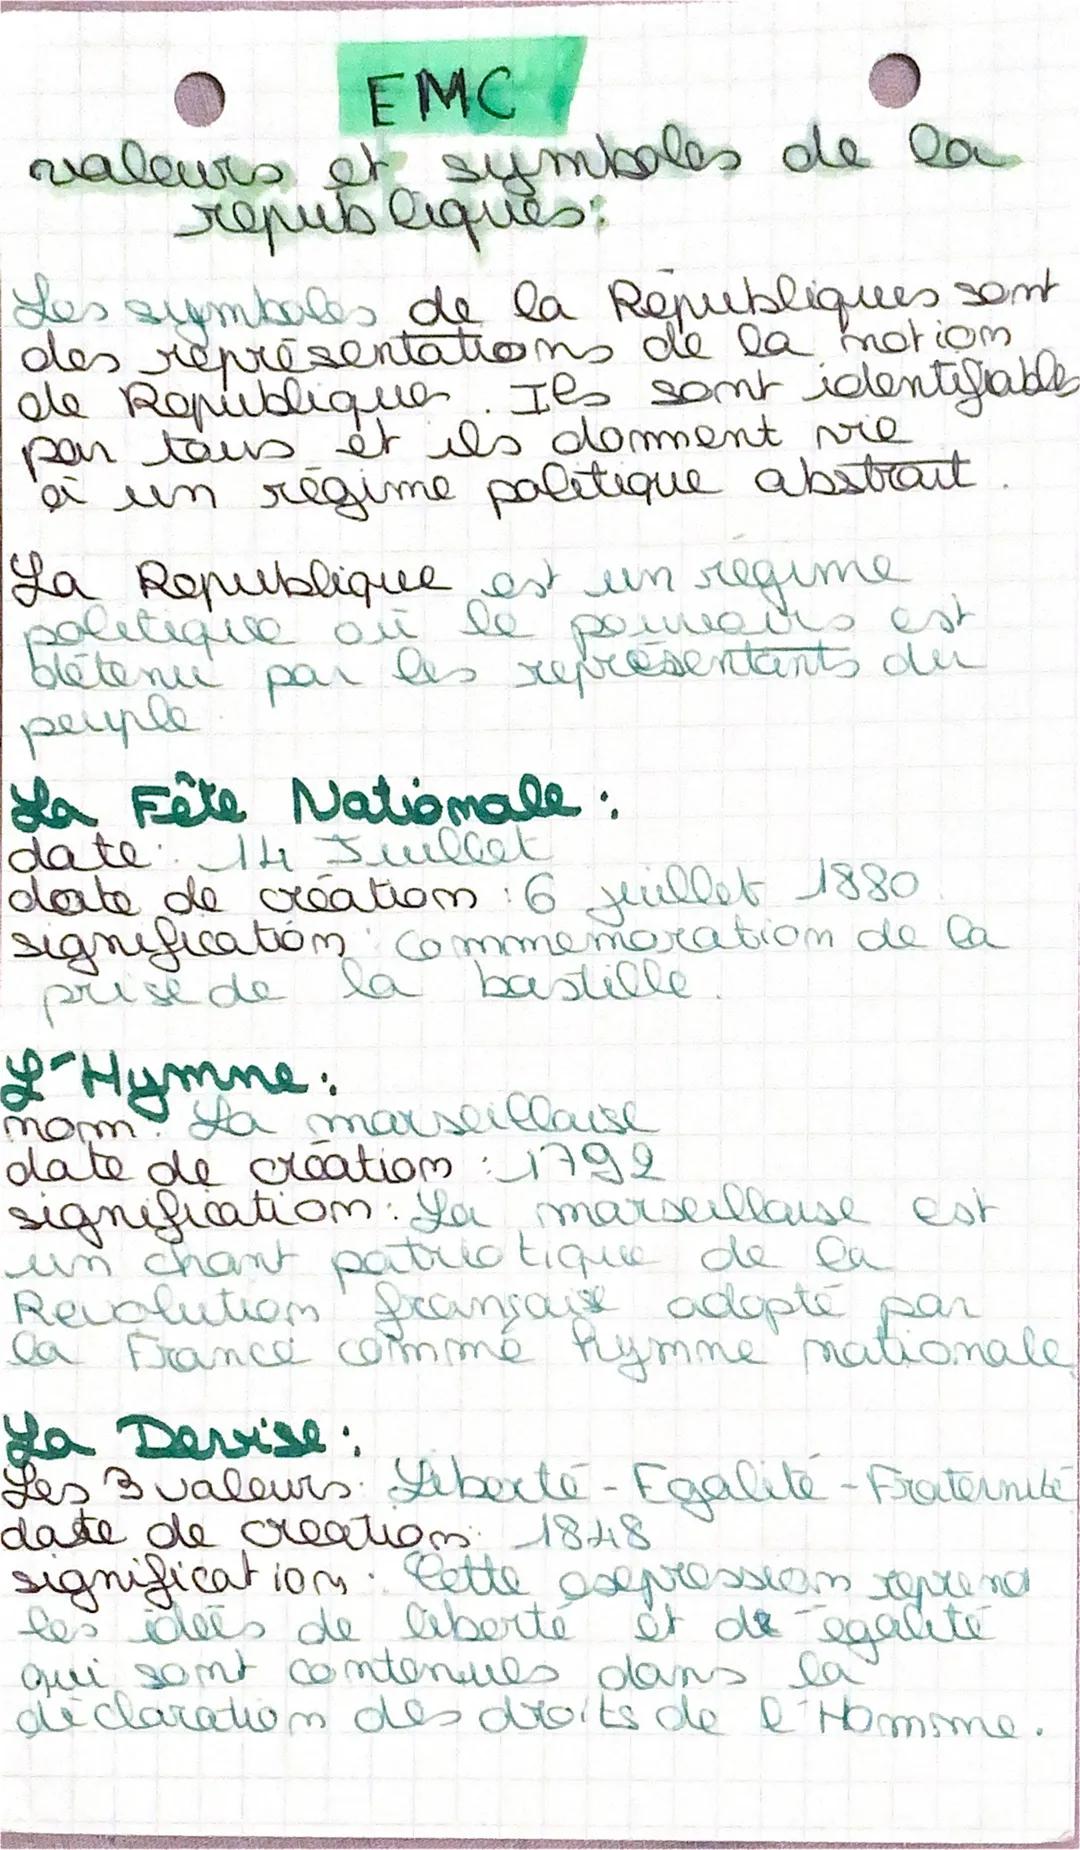 EMC
valeurs et symboles de la
republiques:
Les symboles de la Républiques sont
des représentations de la notion
de Republiques. Ils sont identifiables
par tous et ils donnent vie
à un régime politique abstrait.
La Republique est un régime
politique où le pouvoirs est
détenu par les représentants du
peuple
La Fête Nationale :
date : 14 Juillet
date de création : 6 juillet 1880.
signification : commemoration de la
prise de la bastille.
L'Hymne :
nom : La marseillaise
date de création : 1792
signification : La marseillaise est
un chant patriotique de la
Revolution française adopté par
la France comme hymne nationale
La Devise :
Les 3 valeurs : Liberté - Egalité - Fraternité
date de creation : 1848
signification : Cette expression reprend
les idées de liberté et de égalité
qui sont contenues dans la
déclaration des droits de l'Homme.